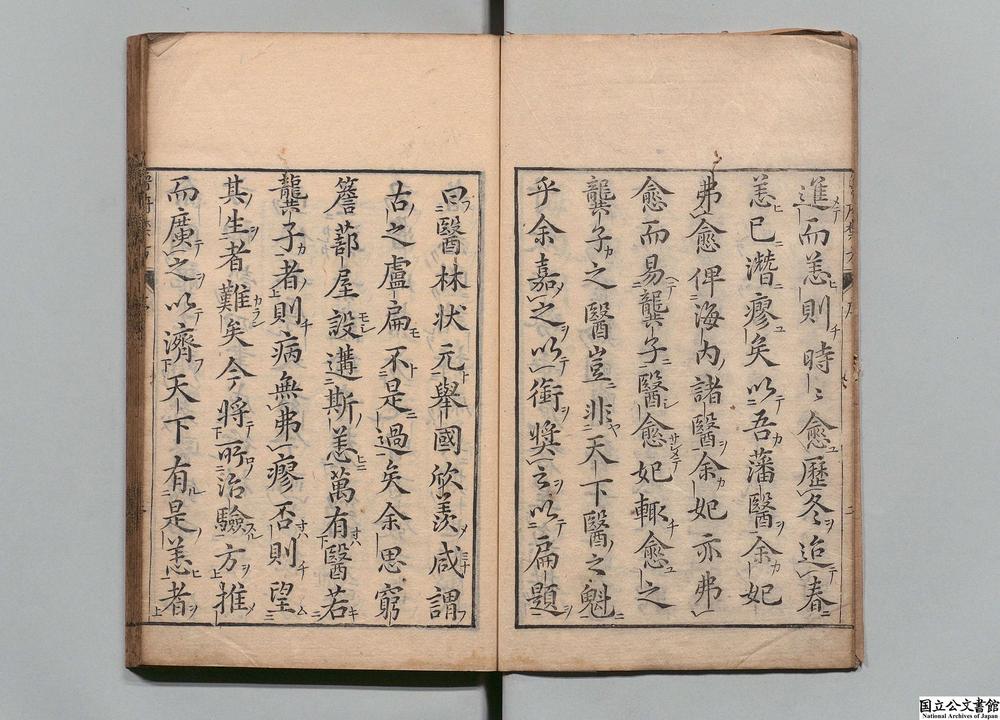 進而恙則時〻愈歷冬迨春
恙已潛瘳矣以吾藩醫余妃
弗愈俾海內諸醫余妃亦弗
愈而易龔子醫愈妃輒愈之
龔子之醫豈非天下醫之魁
乎余嘉之以銜獎之以扁題
曰醫林狀元舉國欣羨咸謂
古之盧扁不是過矣余思窮
簷蔀屋設遘斯恙萬有醫若
龔子者則病無弗瘳否則望
其生者難矣今將所治驗方推
而廣之以濟天下有是恙者
国立公文書館
National Archives of Japan